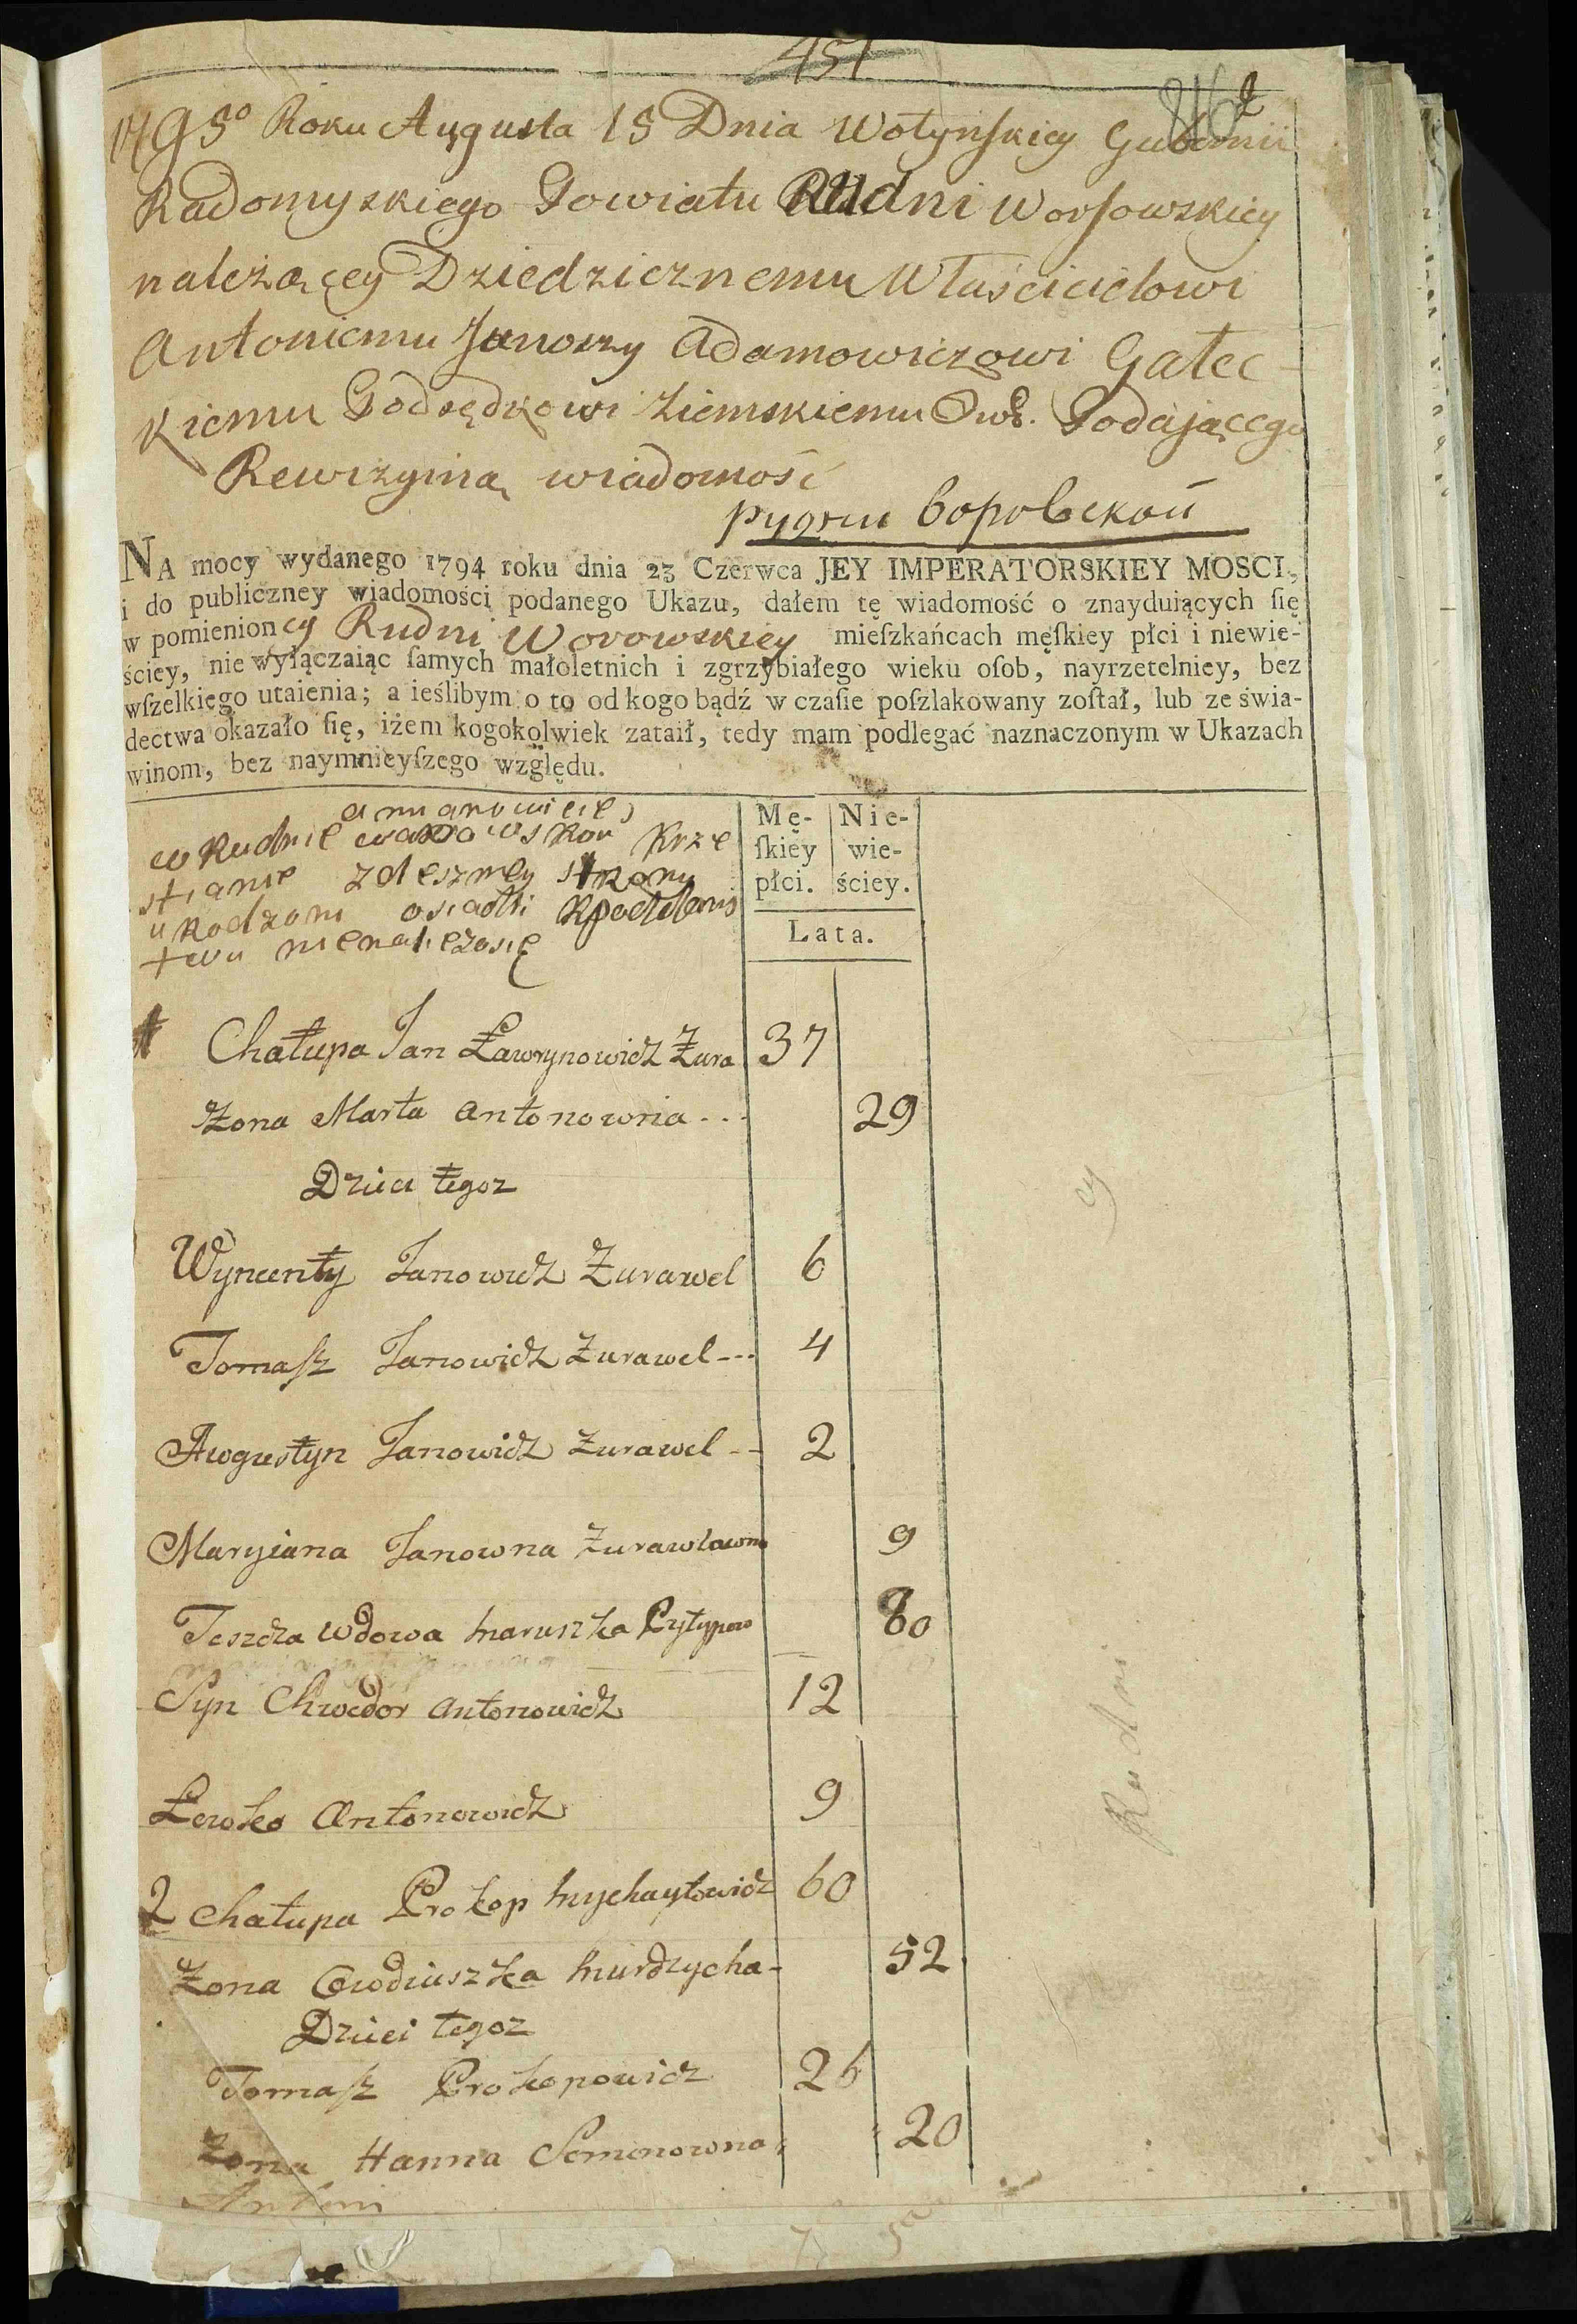 451
1795º Roku Augusta 15 Dnia Wołynskiey Gubernii
Radomyskiego Powiatu Rudni Worsowskiey
należącey Dziedzicznemu Właścicielowi
Antoniemu Janoszy Adamowiczowi Gałec-
kiemu Podsędkowi Ziemskiemu Owr. Podającego
Rewizyiną wiadomość
рудни воровской
NA mocy wydanego 1794 roku dnia 23 Czerwca JEY IMPERATORSKIEY MOSCI,
i do publiczney wiadomości podanego Ukazu, dałem tę wiadomość o znayduiących ſię
w pomienioney Rudni Worowskiey mieſzkańcach męſkiey płci i niewie-
ściey, nie wyłączaiąc ſamych małoletnich i zgrzybiałego wieku oſob, nayrzetelniey, bez
wſzelkiego utaienia; a ieślibym o to od kogo bądź w czaſie poſzlakowany zoſtał, lub ze świa-
dectwa okazało ſię, iżem kogokolwiek zataił, tedy mam podlegać naznaczonym w Ukazach
winom, bez naymnieyſzego względu.
a mianowicie
w Rudnie worowskoy krze
stianie zdeszney strony
urodzoni osiadli k poddans
twu nienależosię
Mę- ſkiey płci. Nie- wie- ściey.
Lata.
1 Chałupa Jan Ławrynowicz Żura 37
Żona Marta Antonowna --- 29
Dzieci tegoz
Wyncenty Janowicz Żurawel 6
Tomaſz Janowicz Żurawel --- 4
Awgustyn Janowicz Żurawel -- 2
Maryiana Janowna Żurawlowna 9
Teszcza Wdowa Maruszka Pylypow 80
Syn Chwedor Antonowicz 12
Lewko Antonowicz 9
2 Chałupa Prokop Mychayłowicz 60
Żona Owdiuszka 52
Dzieci tegoz
Tomaſz Prokopowicz 26
Żona Hanna Semenowna 20
Rudni